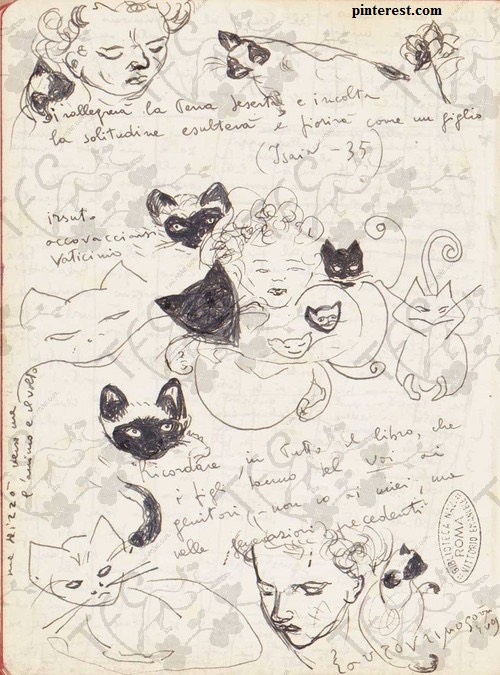 pinterest.com
si rallegrerà la terra deserta e incolta
la solitudine esulterà e fiorirà come un giglio
(Isaia - 35)
irsuto
accovacciarsi
vaticinio
Ricordare, in tutto il libro, che
i figli danno del voi ai
genitori, - non io ai miei, ma
nelle generazioni precedenti
e il volto
l'animo
BIBLIOTECA NAZION.
ROMA
VITTORIO EMANUELE